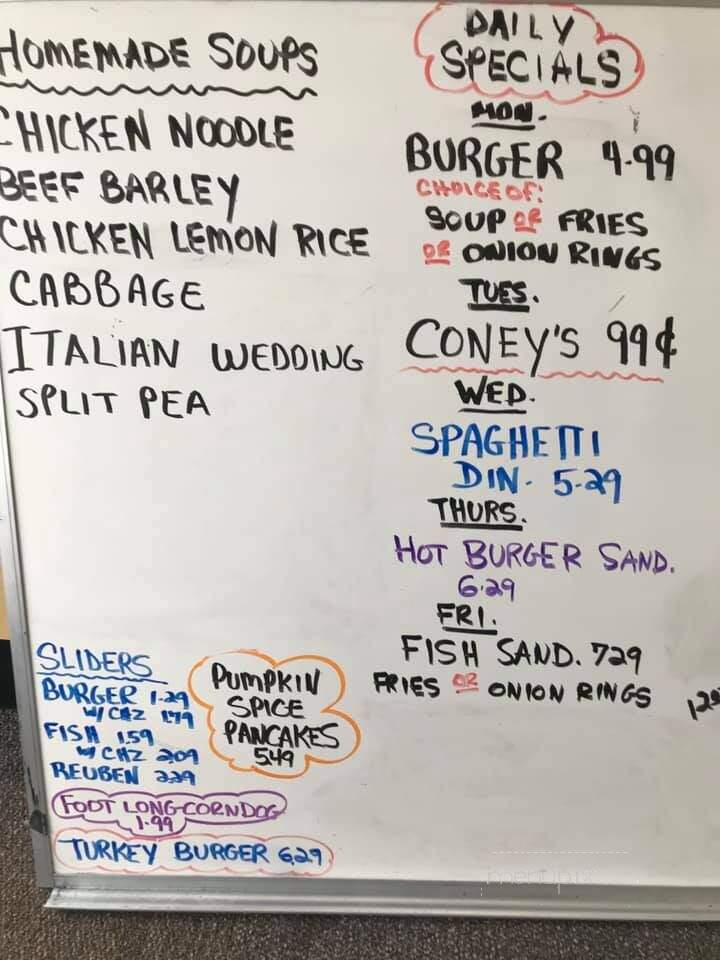 HOMEMADE SOUPS
CHICKEN NOODLE
BEEF BARLEY
CHICKEN LEMON RICE
CABBAGE
ITALIAN WEDDING
SPLIT PEA
DAILY
SPECIALS
MON.
BURGER 4.99
CHOICE OF:
SOUP OR FRIES
OR ONION RINGS
TUES.
CONEY'S 99¢
WED.
SPAGHETTI
DIN. 5.29
THURS.
HOT BURGER SAND.
6.29
FRI.
FISH SAND. 729
FRIES OR ONION RINGS
SLIDERS
BURGER 1.29
W/ CHZ 179
FISH 1.59
W/ CHZ 209
REUBEN 229
PUMPKIN
SPICE
PANCAKES
5.49
FOOT LONG CORNDOG
1.99
TURKEY BURGER 6.29